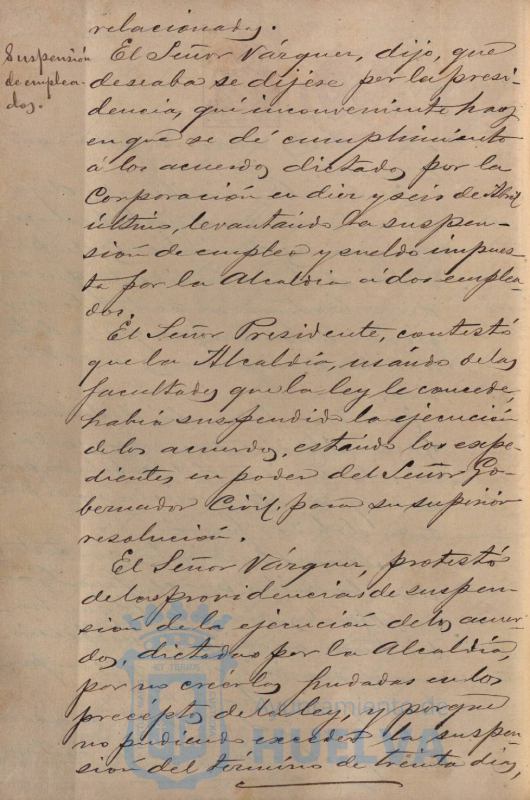 relacionados.
Suspensión
de emplea-
dos.
El Señor Vázquez, dijo, que
deseaba se dijese por la presi-
dencia, qué inconveniente hay
en que se dé cumplimiento
á los acuerdos dictados por la
Corporación en diez y seis de Abril
último, levantando la suspen-
sión de empleo y sueldo impues-
ta por la Alcaldía á dos emplea-
dos.
El Señor Presidente, contestó
que la Alcaldía, usando de las
facultades que la ley le concede,
había suspendido la ejecución
de los acuerdos, estando los expe-
dientes en poder del Señor Go-
bernador Civil para su superior
resolución.
El Señor Vázquez, protestó
de las providencias de suspen-
sión de la ejecución de los acuer-
dos, dictadas por la Alcaldía,
por no creerlas fundadas en los
preceptos de la ley, y porque
no pudiendo exceder la suspen-
sión del término de treinta dias,
Ayuntamiento de
HUELVA